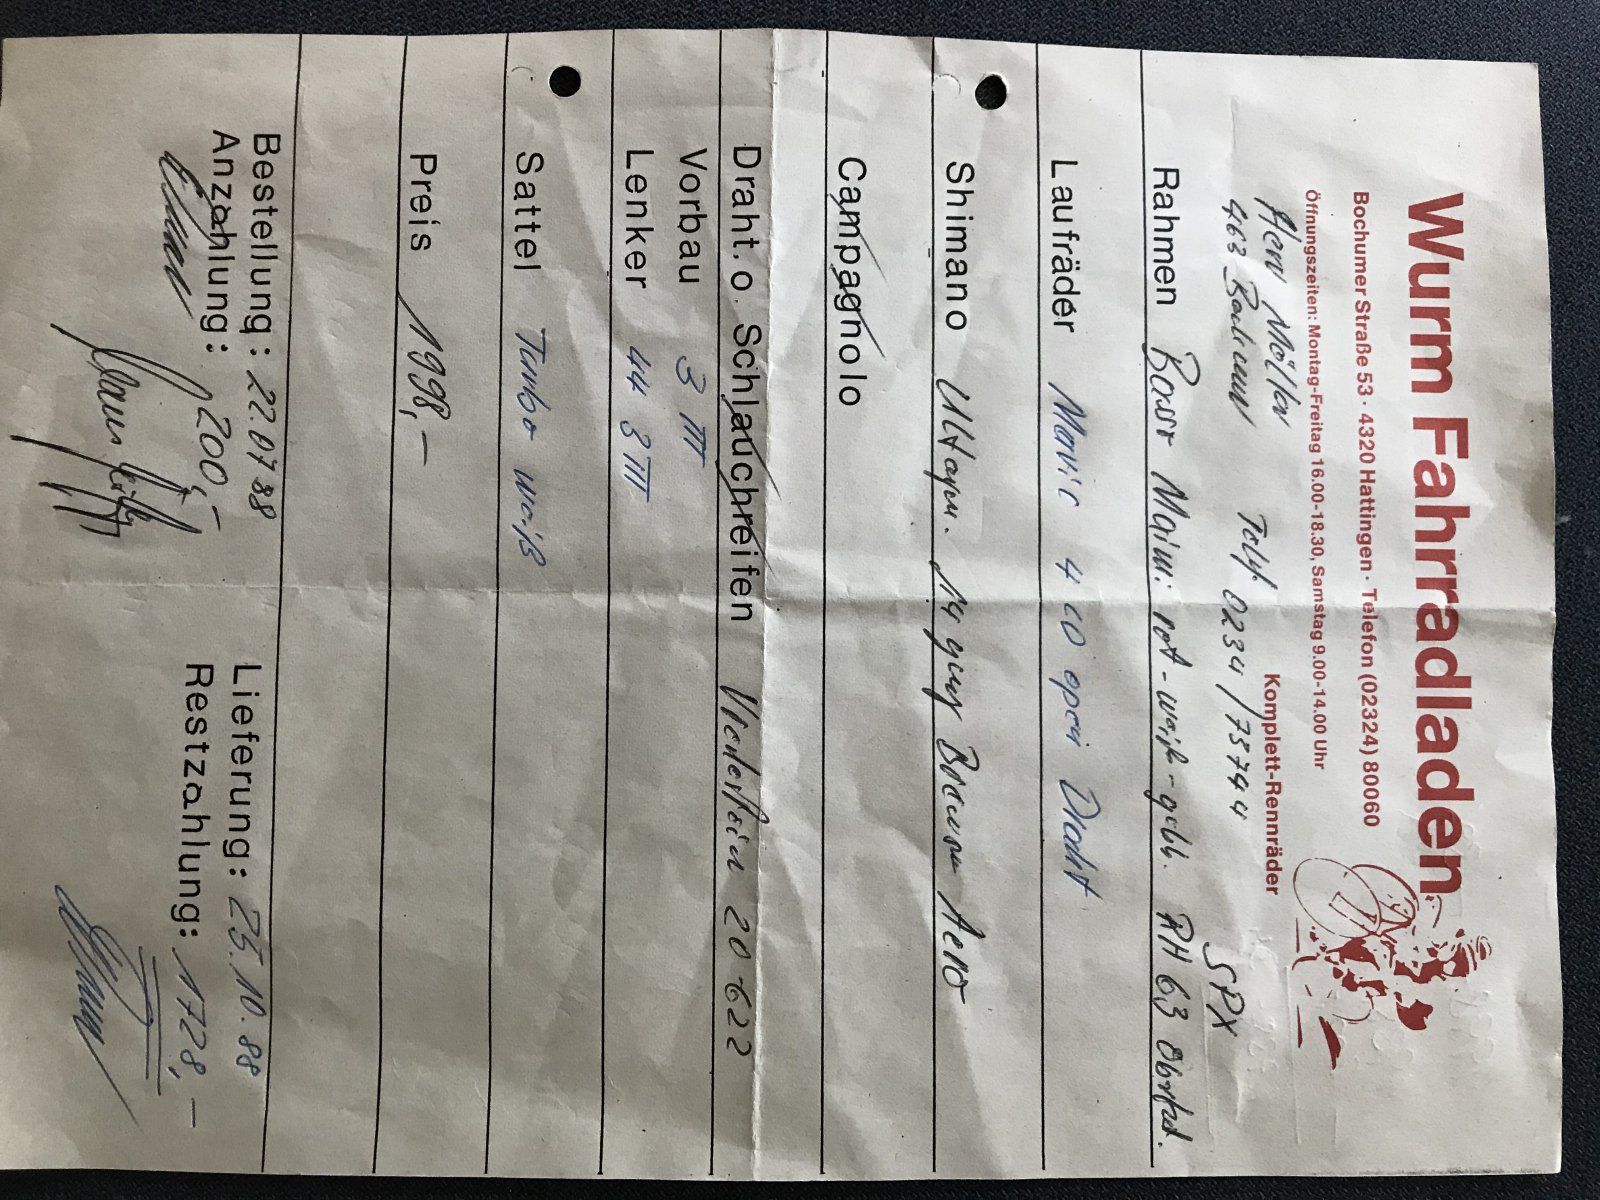 Wurm Fahrradladen
Bochumer Straße 53 · 4320 Hattingen · Telefon (02324) 80060
Öffnungszeiten: Montag-Freitag 16.00-18.30, Samstag 9.00-14.00 Uhr
Komplett-Rennräder
Herr Möller
463 Bochum Telf. 0234/75744 SPX
Rahmen rot-weiß-gelb. RH 63
Laufräder Mavic 4 CD open Draht
Shimano 14 gang Bremsen Aero
Campagnolo
Draht.o. Schlauchreifen 20-622
Vorbau 3 TTT
Lenker 44 3 TTT
Sattel Turbo weiß
Preis 1998,-
Bestellung: 22.07 88 Lieferung: 25.10.88
Anzahlung: 200,- Restzahlung: 1728,-